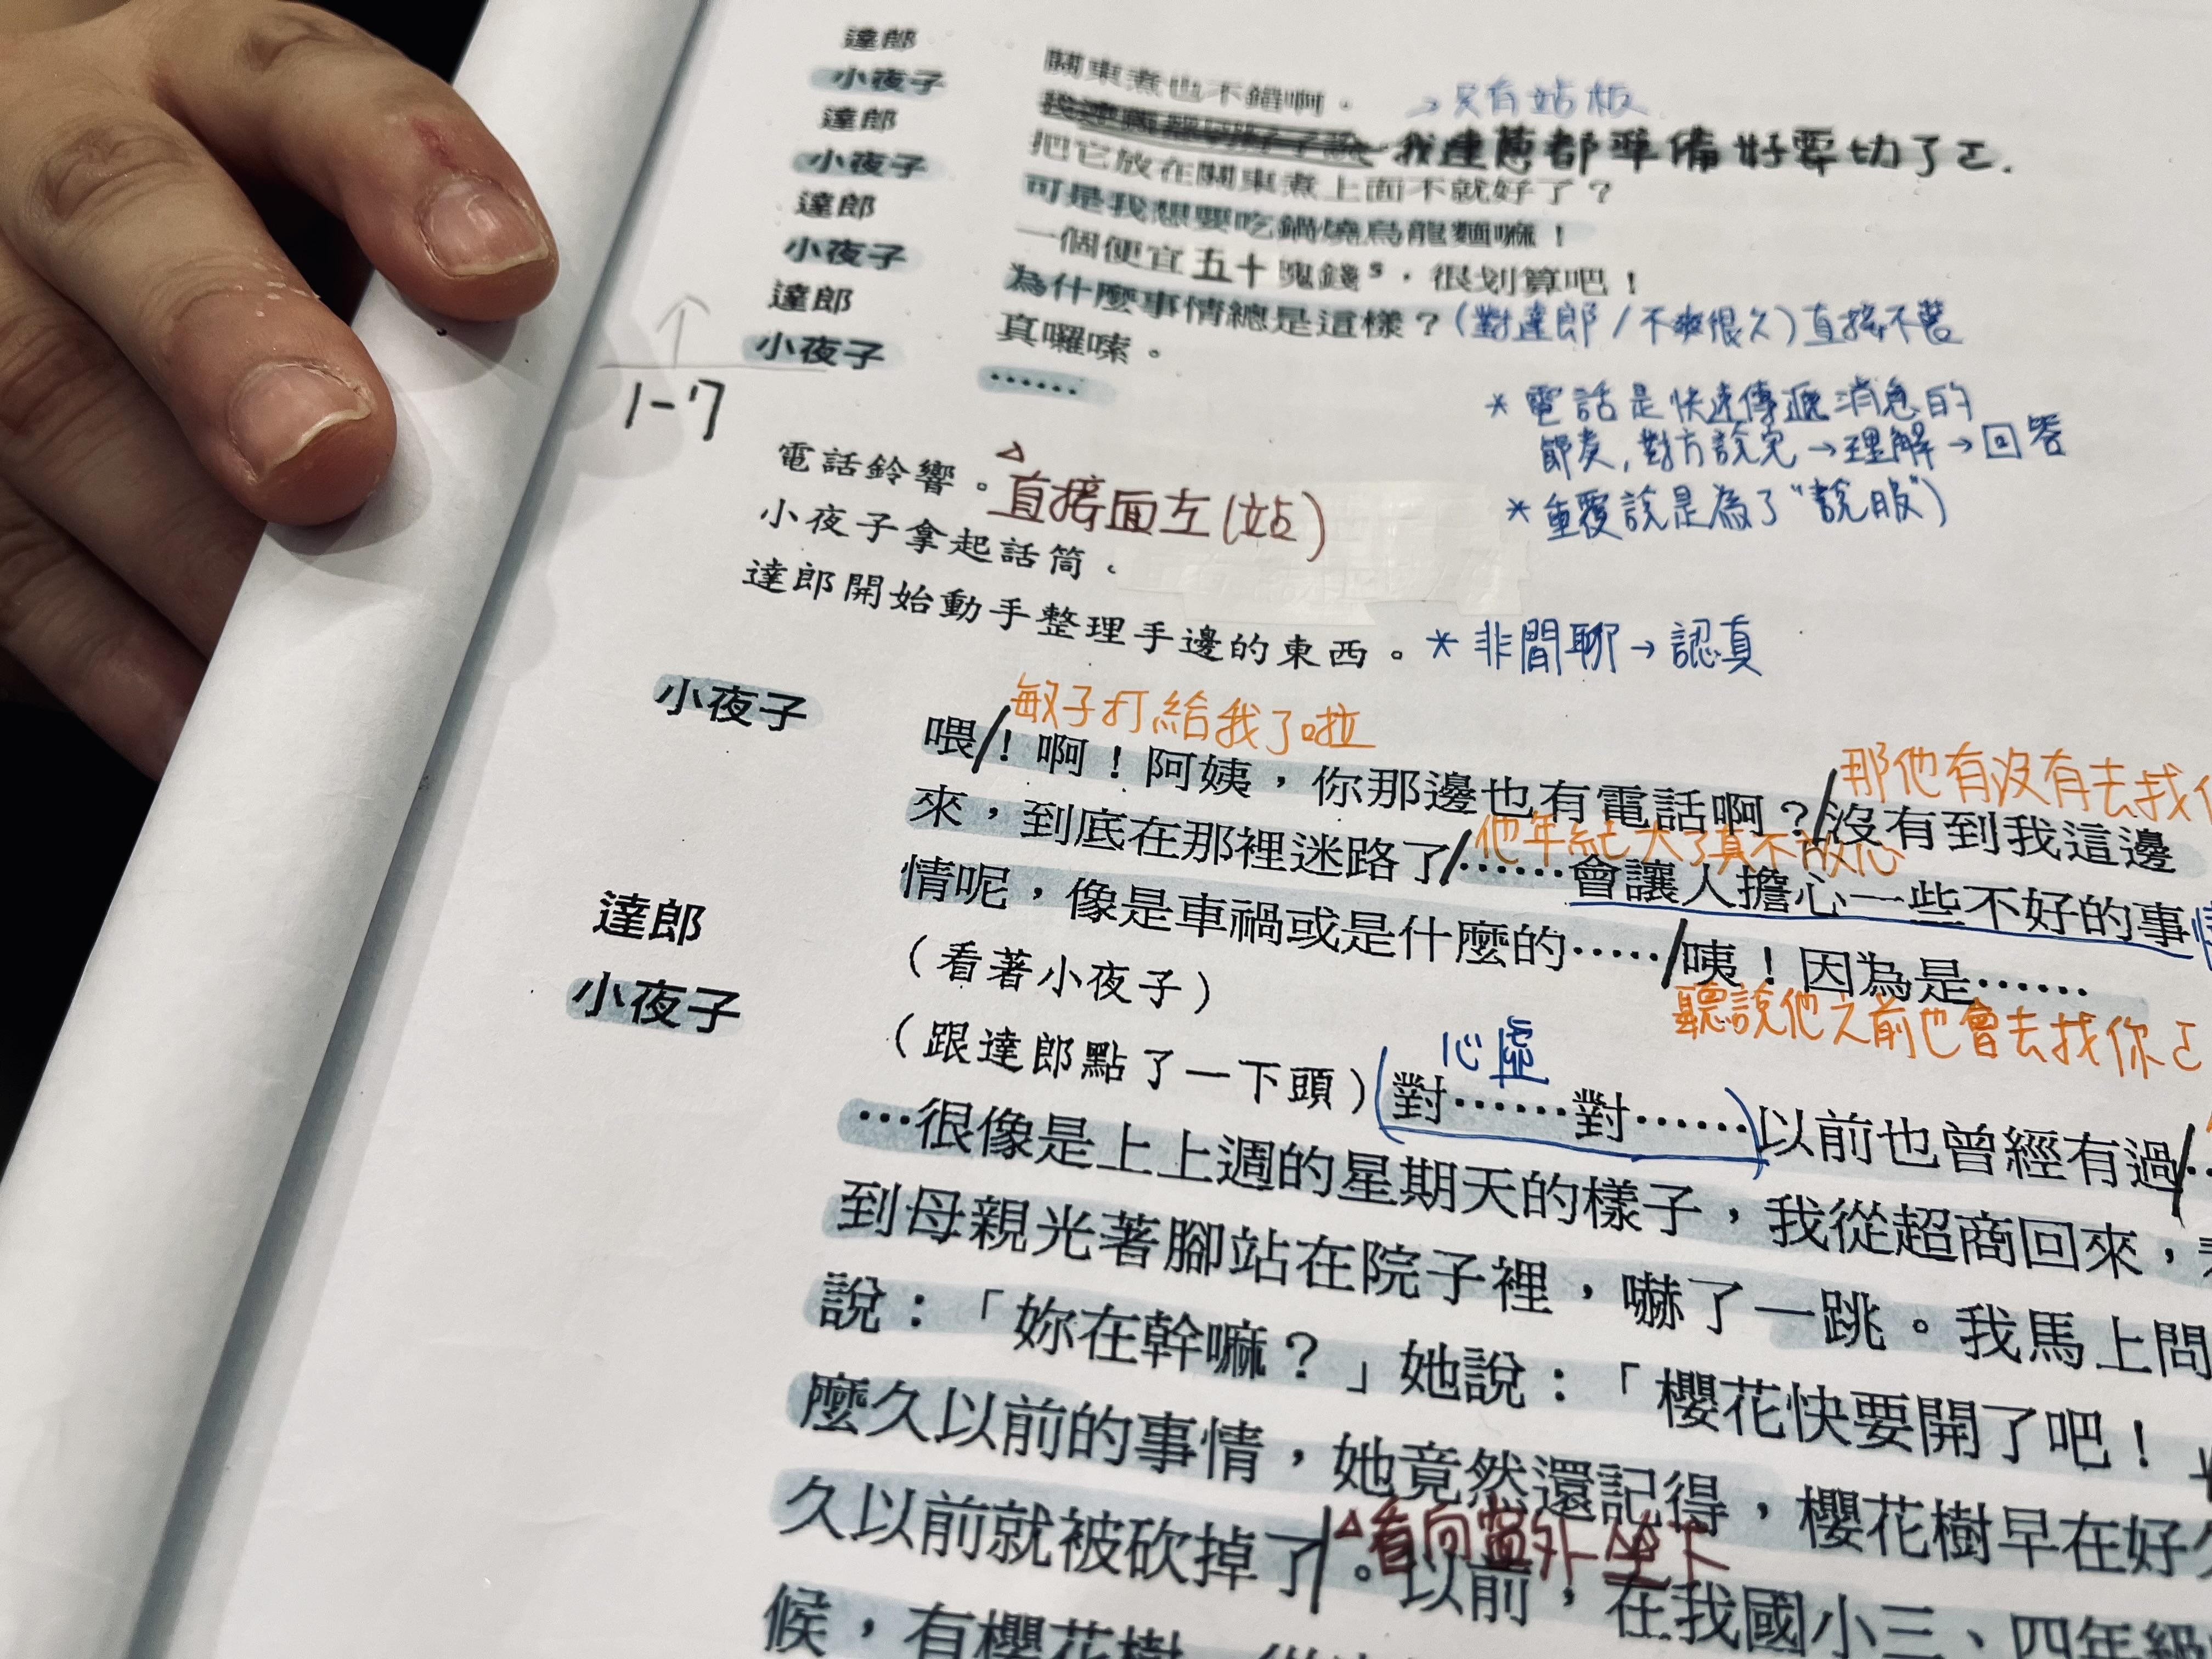 達郎 關東煮也不錯啊。
→只有站板
小夜子 我連蔥都準備好要切了ㄛ.
達郎 把它放在關東煮上面不就好了？
小夜子 可是我想要吃鍋燒烏龍麵嘛！
達郎 一個便宜五十塊錢5，很划算吧！
小夜子 為什麼事情總是這樣？(對達郎/不爽很久)直接不爽
達郎 真囉嗦。
小夜子 ……
1-7
*電話是快速傳遞消息的
節奏,對方說完→理解→回答
*重覆說是為了"說服")
電話鈴響。
△直接面左(站)
小夜子拿起話筒.
達郎開始動手整理手邊的東西。*非閒聊→認真
敏子打給我了啦
那他有沒有去找你
小夜子 喂/！啊！阿姨，你那邊也有電話啊？/沒有到我這邊
他年紀大了真不放心
來，到底在那裡迷路了/……會讓人擔心一些不好的事
情呢，像是車禍或是什麼的……/咦！因為是……
聽說他之前也會去找你ㄛ
達郎 （看著小夜子）
心虛
小夜子 （跟達郎點了一下頭）(對……對……)以前也曾經有過/…
…很像是上上週的星期天的樣子，我從超商回來，
到母親光著腳站在院子裡，嚇了一跳。我馬上問
說：「妳在幹嘛？」她說：「櫻花快要開了吧！
麼久以前的事情，她竟然還記得，櫻花樹早在好
△看向窗外坐下
久以前就被砍掉了/。以前，在我國小三、四年級
候，有櫻花樹